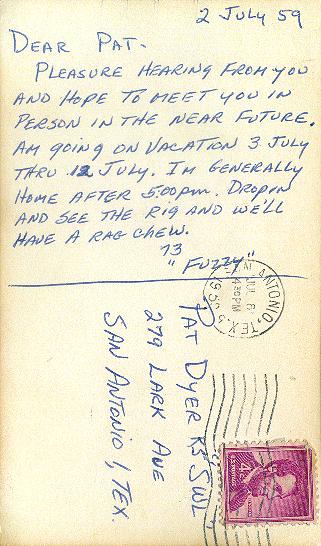 2 JULY 59
DEAR PAT-
PLEASURE HEARING FROM YOU
AND HOPE TO MEET YOU IN
PERSON IN THE NEAR FUTURE.
AM GOING ON VACATION 3 JULY
THRU 12 JULY. I'M GENERALLY
HOME AFTER 5:00PM. DROP IN
AND SEE THE RIG AND WE'LL
HAVE A RAG CHEW.
73
"FUZZY"
SAN ANTONIO, TEX.
JUL 6
430PM
1959
PAT DYER K5SWL
279 LARK AVE
SAN ANTONIO 1, TEX.
4¢